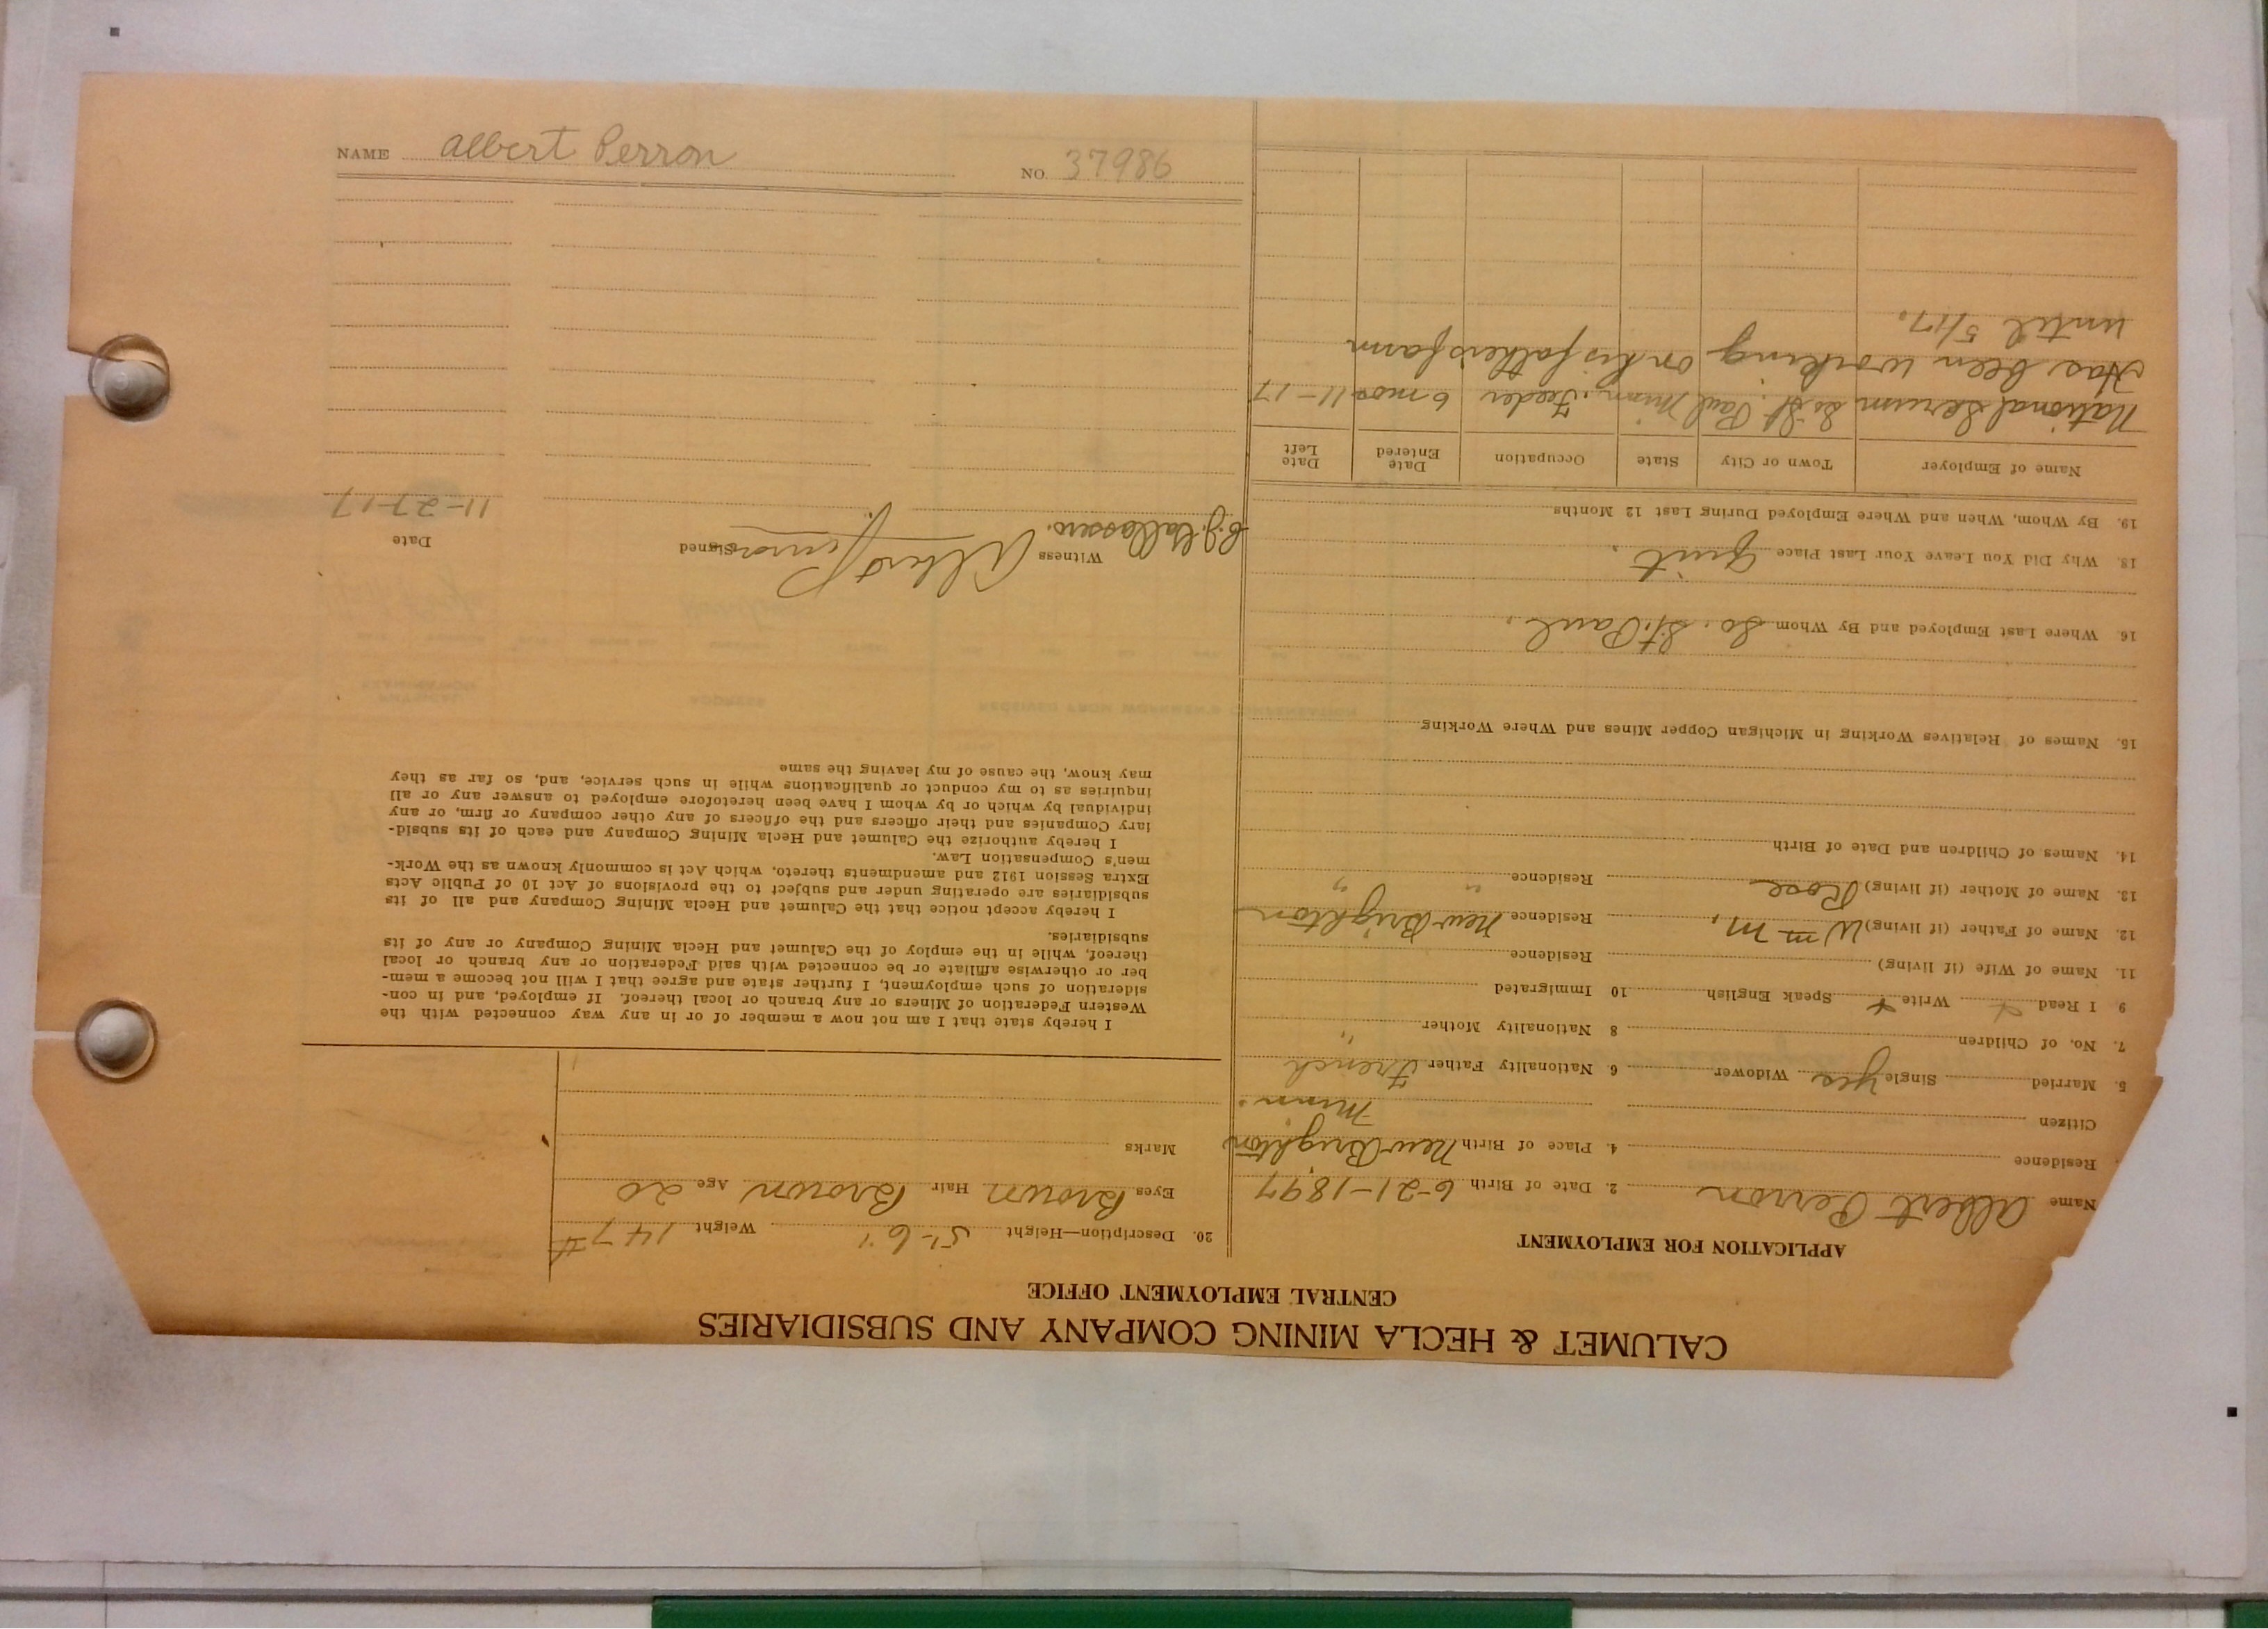 CALUMET & HECLA MINING COMPANY AND SUBSIDIARIES
CENTRAL EMPLOYMENT OFFICE
APPLICATION FOR EMPLOYMENT
Name Albert Perron 2. Date of Birth 6-21-1897
Residence 4. Place of Birth New Brighton
Citizen Minn.
5. Married Single yes Widower 6. Nationality Father French
7. No. of Children 8 Nationality Mother "
9 I Read Write Speak English 10 Immigrated
11. Name of Wife (if living) Residence
12. Name of Father (if living) Wm M, Residence New Brighton
13. Name of Mother (if living) Rose Residence " "
14. Names of Children and Date of Birth
15. Names of Relatives Working in Michigan Copper Mines and Where Working
16. Where Last Employed and By Whom So. St. Paul.
18. Why Did You Leave Your Last Place Quit.
19. By Whom, When and Where Employed During Last 12 Months
Name of Employer Town or City State Occupation Date Entered Date Left
National Serum So St. Paul Minn. Feeder 6 mos 11-17
Has been working on his father's farm
until 5/17.
20. Description—Height 5'-6" Weight 147#
Eyes Brown Hair Brown Age 20
Marks
I hereby state that I am not now a member of or in any way connected with the
Western Federation of Miners or any branch or local thereof. If employed, and in con-
sideration of such employment, I further state and agree that I will not become a mem-
ber or otherwise affiliate or be connected with said Federation or any branch or local
thereof, while in the employ of the Calumet and Hecla Mining Company or any of its
subsidiaries.
I hereby accept notice that the Calumet and Hecla Mining Company and all of its
subsidiaries are operating under and subject to the provisions of Act 10 of Public Acts
Extra Session 1912 and amendments thereto, which Act is commonly known as the Work-
men's Compensation Law.
I hereby authorize the Calumet and Hecla Mining Company and each of its subsid-
iary Companies and their officers and the officers of any other company or firm, or any
individual by which or by whom I have been heretofore employed to answer any or all
inquiries as to my conduct or qualifications while in such service, and, so far as they
may know, the cause of my leaving the same
Witness Albert Perron Signed Date
11-27-17
NAME Albert Perron NO. 37986